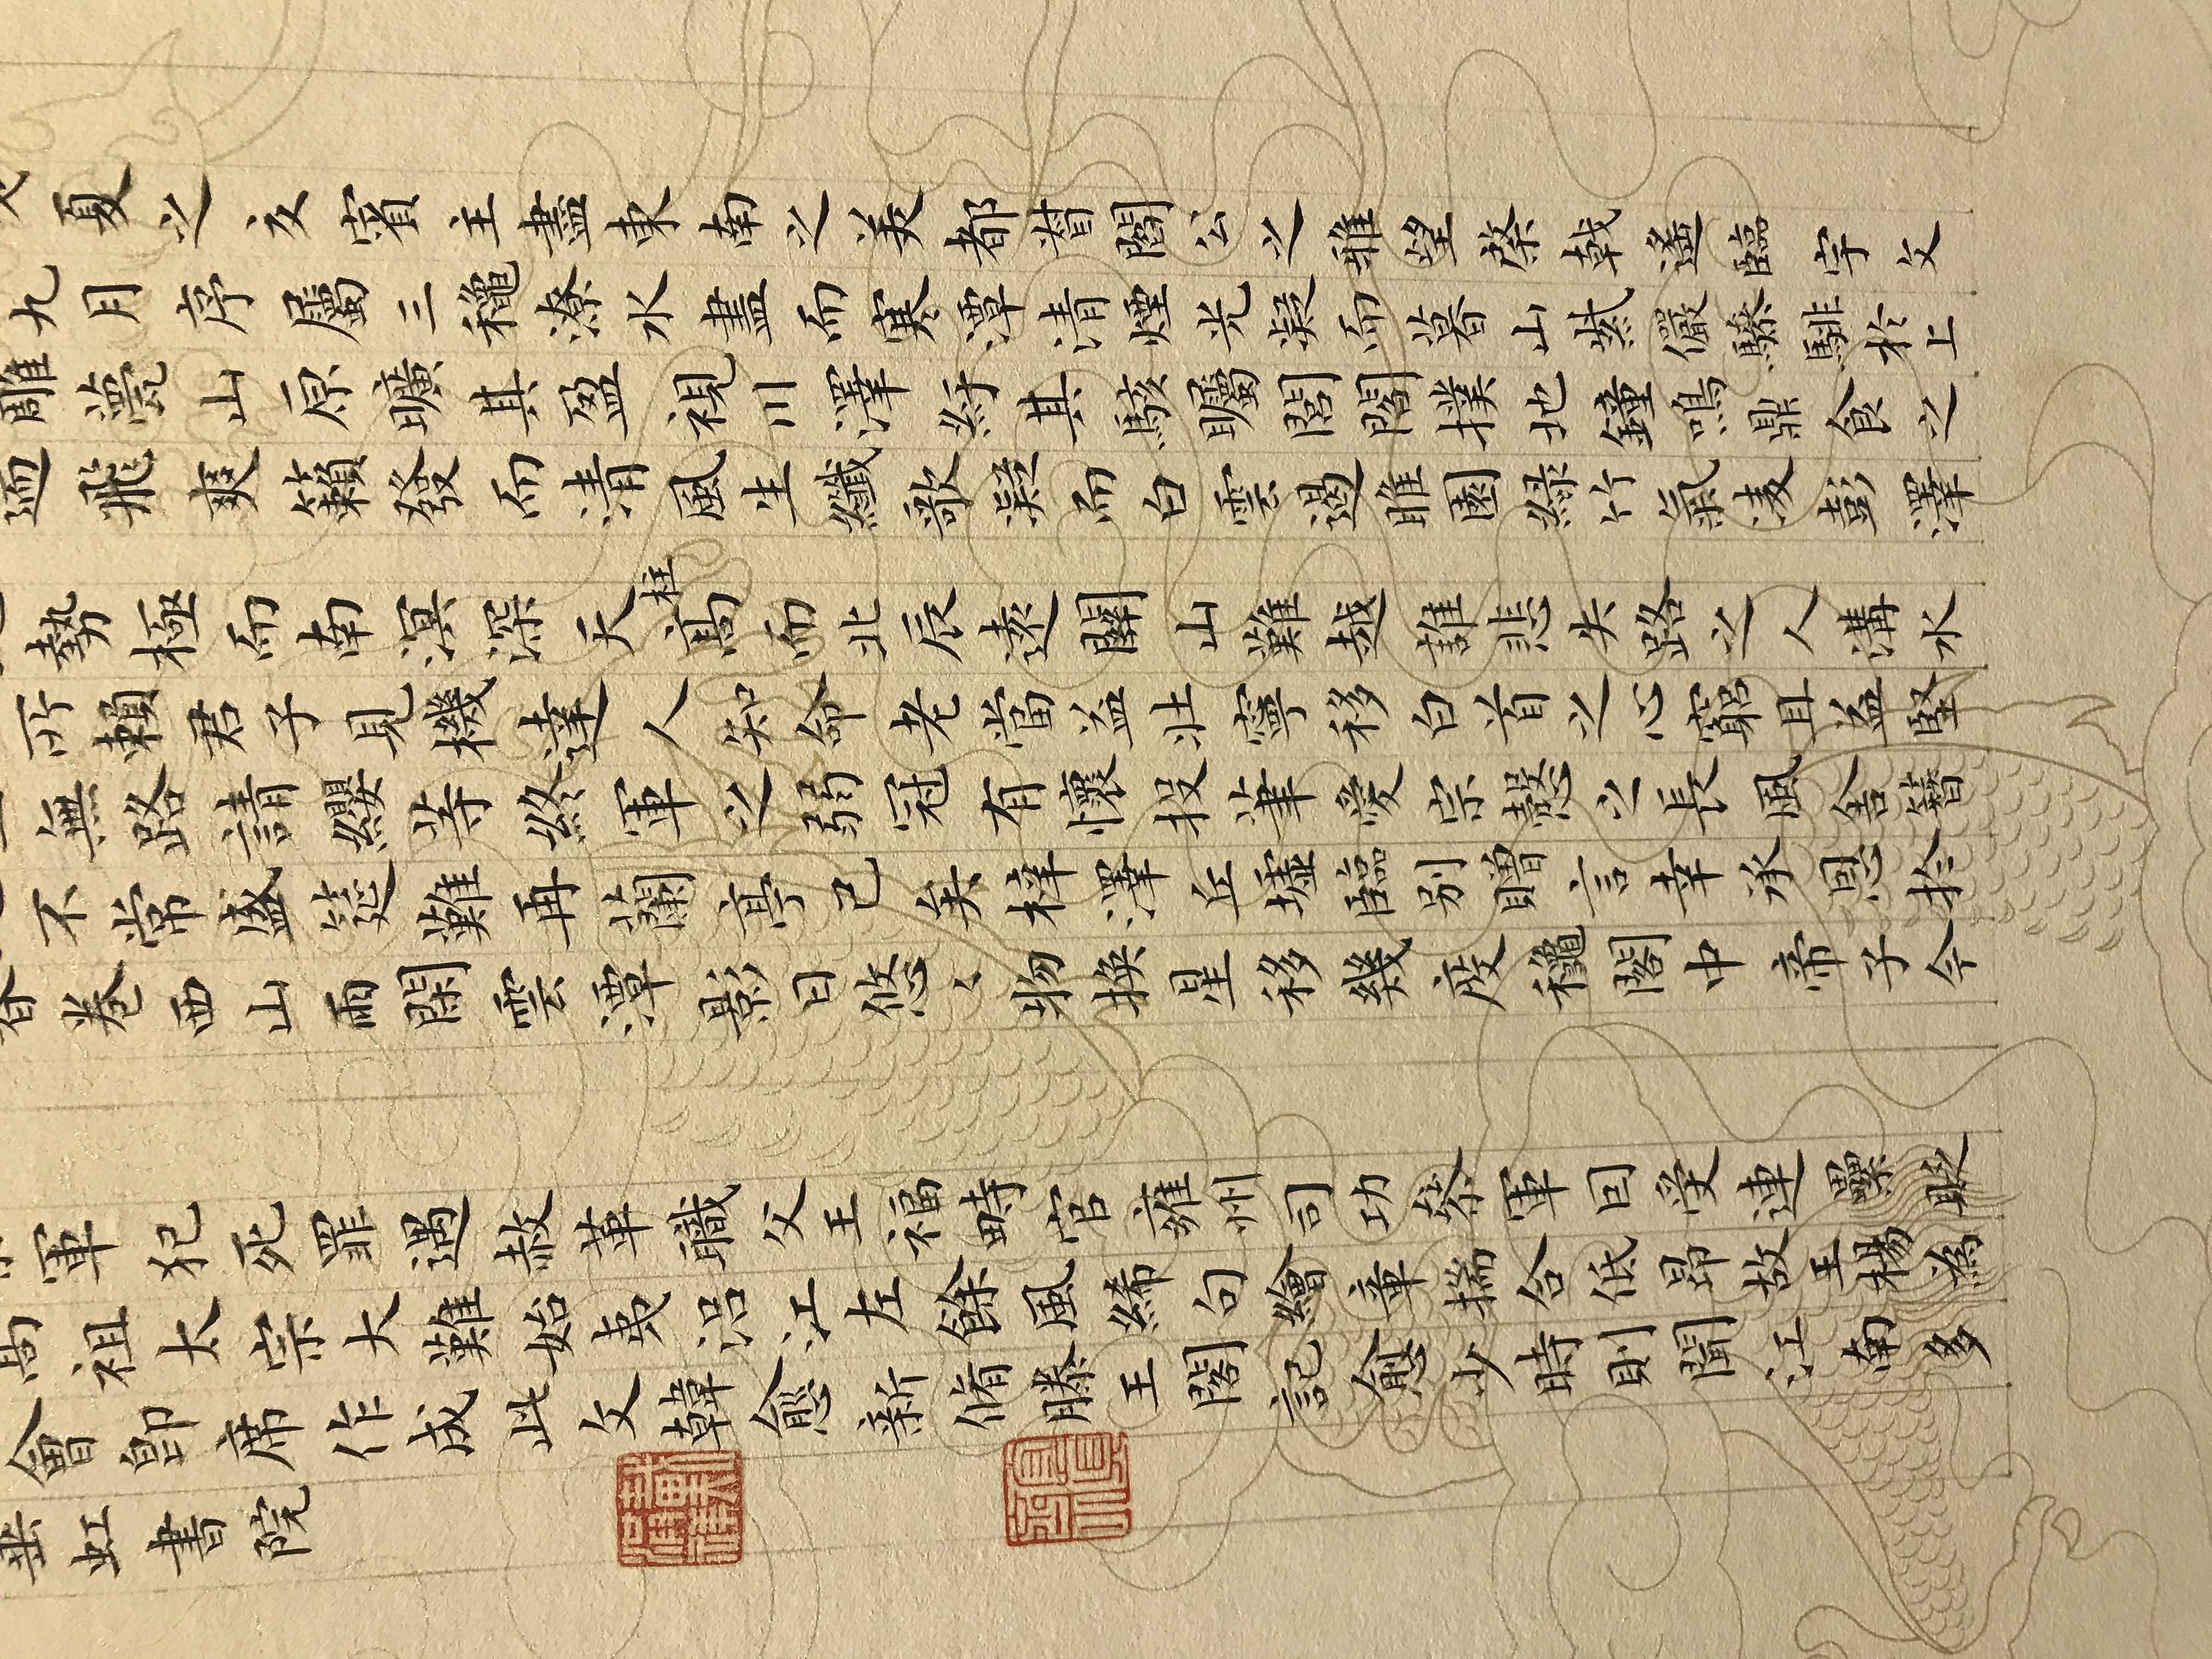 夏之交賓主盡東南之美都督閻公之雅望棨戟遙臨宇文
九月序屬三穐潦水盡而寒潭清煙光凝而暮山紫儼驂騑於上
雕甍山原曠其盈視川澤紆其駭矚閭閻撲地鐘鳴鼎食之
飛爽籟發而清風生纖歌凝而白雲遏睢園緑竹氣凌彭澤
勢極而南溟深天柱高而北辰遠關山難越誰悲失路之人溝水
所賴君子見機達人知命老當益壯寧移白首之心窮且益堅
無路請纓等終軍之弱冠有懷投筆愛宗慤之長風舍簪
不常盛筵難再蘭亭已矣梓澤丘墟臨别贈言幸承恩於
卷西山雨閑雲潭影日悠々物換星移幾度穐閣中帝子今
軍犯死罪遇赦革職父王福畤官雍州司功叅軍囙受連纍貶
高祖太宗大難始夷沿江左餘風絺句繪章揣合低昂故王楊為
會卽席作成此文韓愈新脩滕王閣記愈少時則聞江南多
垂虹書院